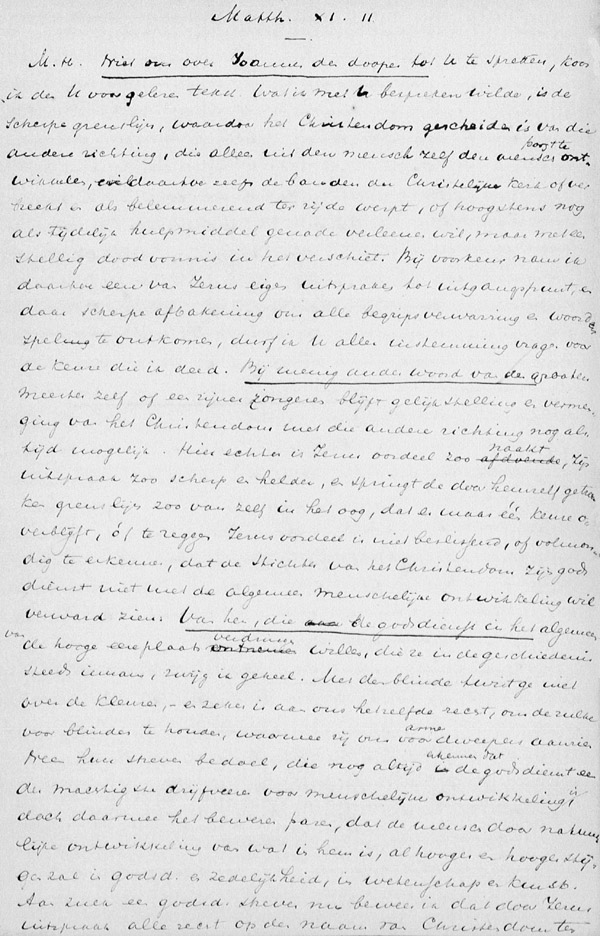 Matth. XI. 11
M. H. Niet om over Joannes den dooper tot U te spreken, koos
ik den U voorgelezen tekst. Wat ik met U bespreken wilde, is de
scherpe grenslijn, waardoor het Christendom gescheiden is van die
andere richting, die alleen uit den mensch zelf den mensch poogt te ont-
wikkelen, en daartoe zelfs de banden der Christelijke kerk of ver
als belemmerend ter zijde werpt, of hoogstens nog
als tijdelijk hulpmiddel genade verleenen wil, maar met een
stellig doodvonnis in het verschiet. Bij voorkeur nam ik
daartoe een van Jezus eigen uitspraken tot uitgangspunt, en
daar scherpe afbakening om alle begripsverwarring en woorden
speling te ontkomen, durf ik U aller instemming vragen voor
de keuze die ik deed. Bij menig ander woord van den grooten
meester zelf of een zijner jongeren blijft gelijkstelling en vermen-
ging van het Christendom met die andere richting nog al
tijd mogelijk. Hier echter is Jezus oordeel zoo naakt, zijn
uitspraak zoo scherp en helder, en springt de door hemzelf getrok
ken grenslijn zoo van zelf in het oog, dat er maar één keuze o-
verblijft, óf te zeggen Jezus oordeel is niet beslissend, of volmon-
dig te erkennen, dat de Stichter van het Christendom zijn gods
dienst niet met de algemeen menschelijke ontwikkeling wil
verward zien. Van hen, die de godsdienst in het algemeen
van de hooge eereplaats verdringen willen, die ze in de geschiedenis
steeds innam, zwijg ik geheel. Met den blinde twist ge niet
over de kleuren, - en zeker is aan ons hetzelfde recht, om dezulke
voor blinden te houden, waarmee zij ons voor arme dweepers aanzien.
Neen hun streven bedoel, die nog altijd erkennen dat de godsdienst een
der machtigste drijfveeren voor menschelijke ontwikkeling is,
doch daarmee het beweren paren, dat de mensch door natuur
lijke ontwikkeling van wat in hem is, al hooger en hooger stij-
gen zal in godsd. en zedelijkheid, in wetenschap en kunst.
Aan zulk een godsd. streven nu beweer ik dat door Jezus
uitspraak alle recht op den naam van Christendom te